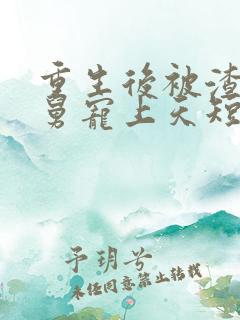 重生後被渣
舅寵上天短
予玥兮
未经同意禁止转载